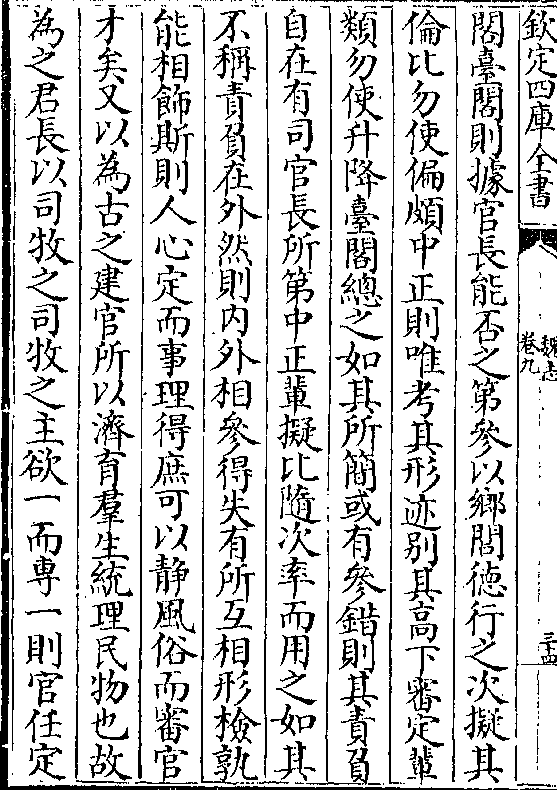 欽定四庫全書
魏志
卷九
三十四
閣臺閣則據官長能否之第參以鄉閭徳行之次擬其
倫比勿使偏頗中正則唯考其形迹别其高下審定輩
類勿使升降臺閣總之如其所簡或有參錯則其責負
自在有司官長所第中正輩擬比隨次率而用之如其
不稱責負在外然則内外相參得失有所互相形檢孰
能相飾斯則人心定而事理得庶可以静風俗而審官
才矣又以為古之建官所以濟育羣生統理民物也故
為之君長以司牧之司牧之主欲一而専一則官任定